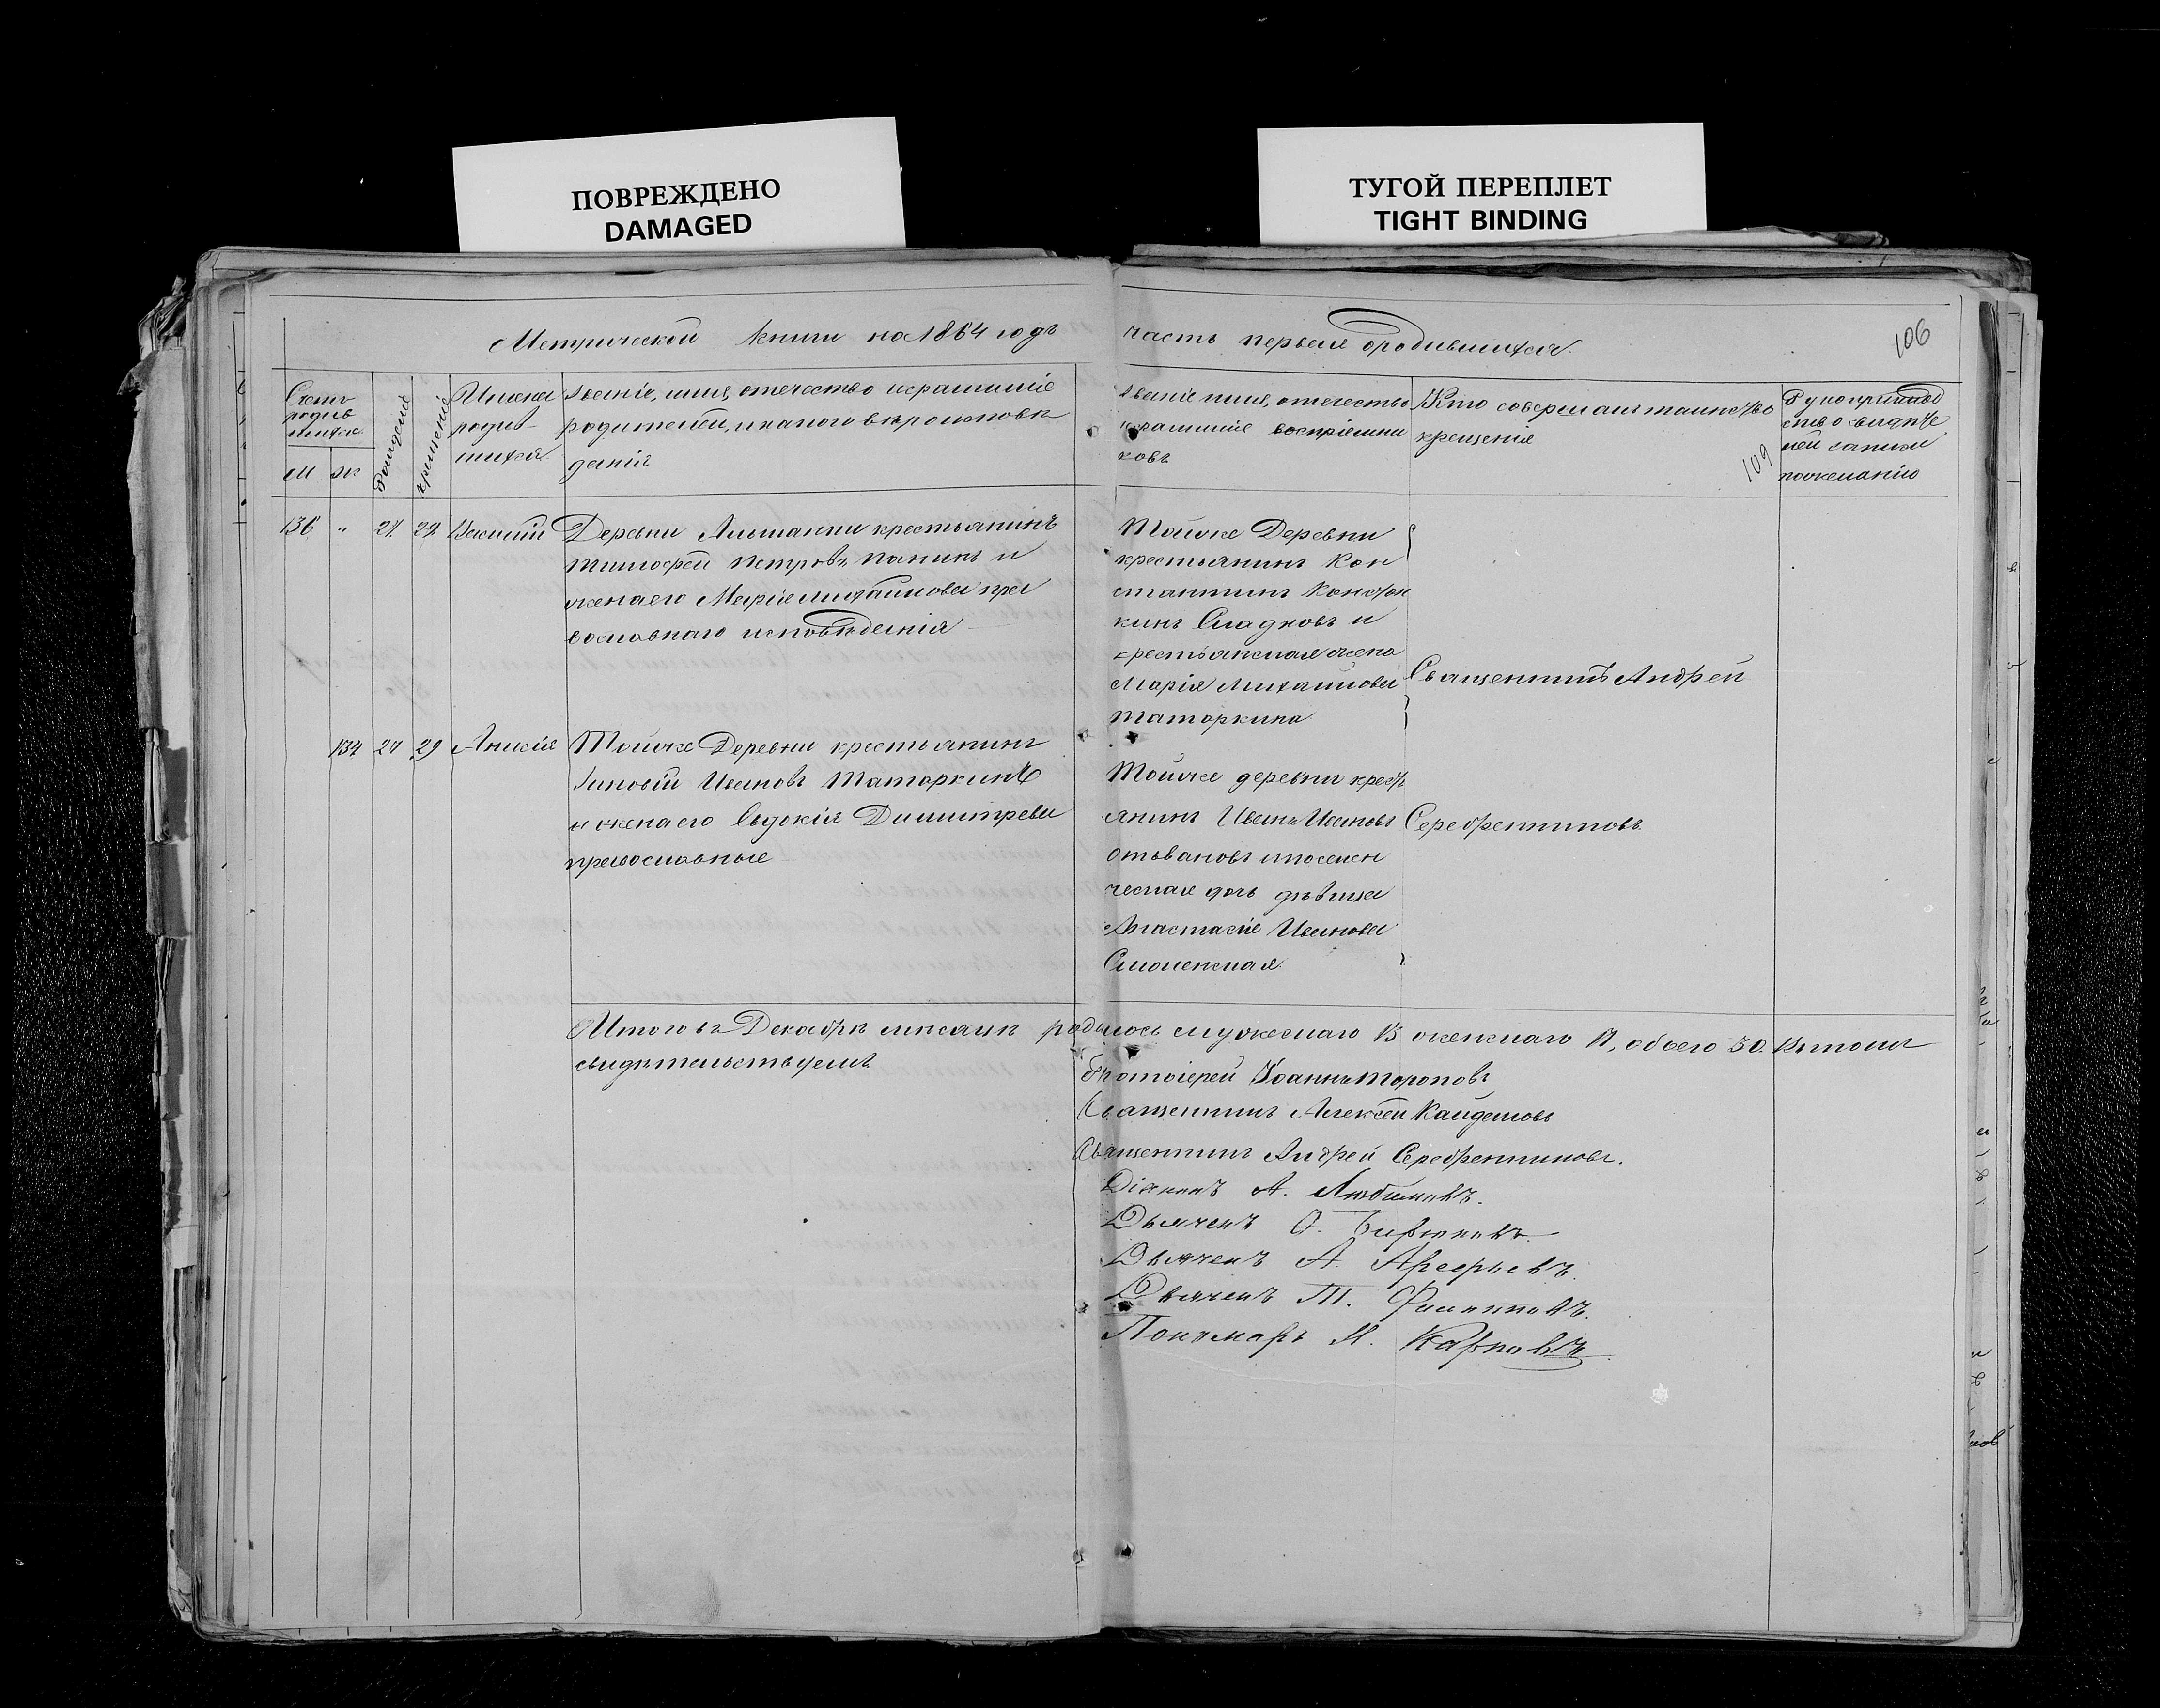 ПОВРЕЖДЕНО
DAMAGED
ТУГОЙ ПЕРЕПЛЕТ
TIGHT BINDING
Метрической книги на 1864 годъ
часть первая о родившихся.
106
Счетъ
родив
шихся
М
ж
Рожденiя
крещенiя
Имена
родив-
шихся
Званiе, имя, отчество и фамилiе
родителей, и какого вѣроисповѣ
данiя
Званiе имя, отчество
и фамилiе воспрiемни
ковъ
Кто совершалъ таинство
крещенiя
109
Рукоприклад
ство свидѣте
лей записи
по желанiю
136 " 27 29 Василiй
Деревни крестьянинъ
Тимофей Петровъ Панинъ и
жена его Марiя Михайлова пра
вославнаго исповѣданiя
Той же Деревни
крестьянинъ Кон
стантинъ
кинъ Сладковъ и
крестьянская жена
Марiя Михайлова
Таторкина
Священникъ Андрей
134 27 29 Анисiя
Той же Деревни крестьянинъ
Зиновiй Ивановъ Таторкинъ
и жена его Евдокiя Димитрева
православные
Той же деревни крест
янинъ Иванъ Ивановъ
и поселен
ческая дочь дѣвица
Анастасiя Иванова
Смоленская.
Серебренниковъ
Итого въ Декабрѣ мѣсяцѣ родилось мужескаго 13 женскаго 17, обоего 30. Въ томъ
свидѣтельствуемъ
Протоiерей Iоаннъ Тороповъ
Священникъ Алексѣй Кайдаловъ
Священникъ Андрей Серебренниковъ.
Дiяконъ А. Любимовъ.
Дьячекъ Бирюковъ.
Дьячекъ А. Арефьевъ.
Дьячекъ Т. Филипповъ.
Пономарь М. Карповъ.